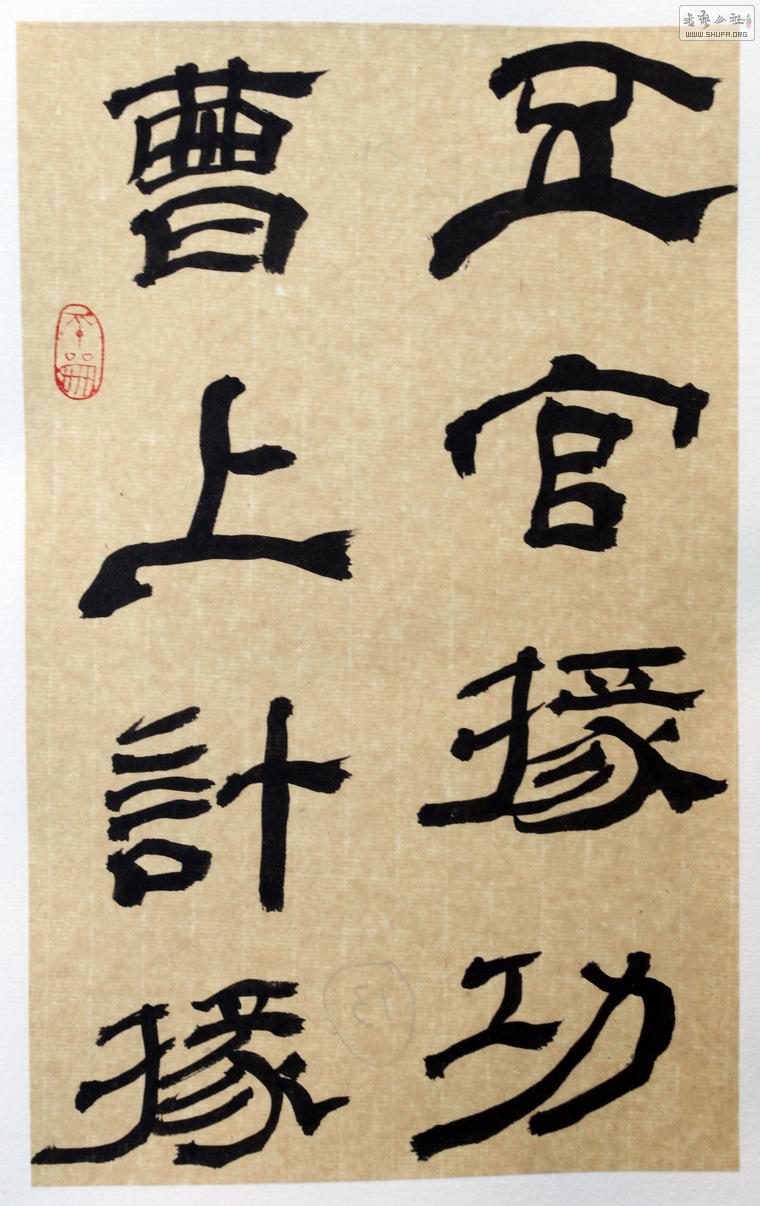 五官掾功
曹上計掾
不器
书艺公社
WWW.SHUFA.ORG